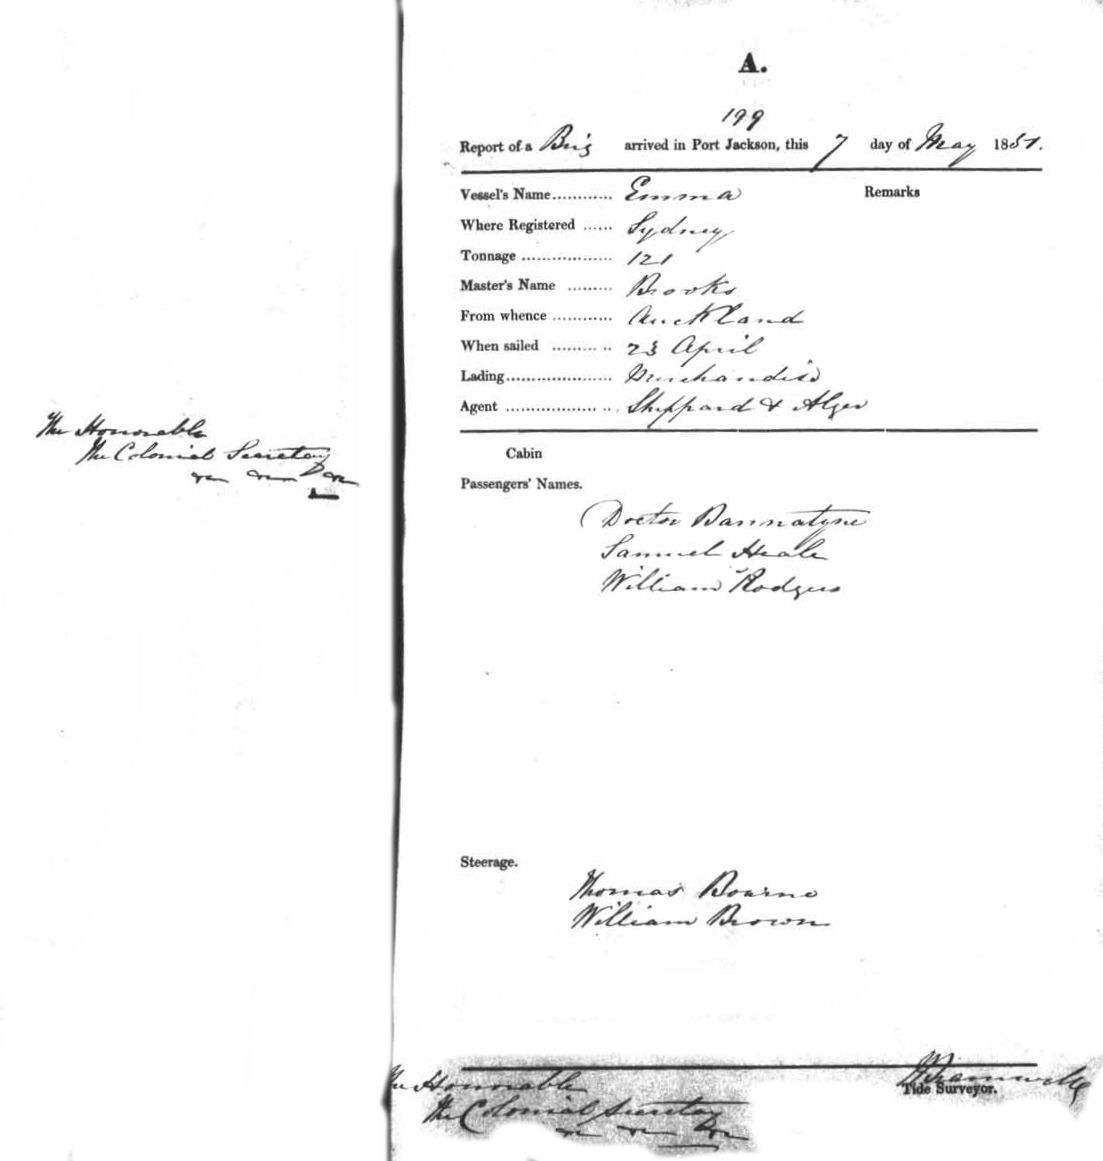 The Honorable
The Colonial Secretary
&c &c &c
A.
199
Report of a Brig arrived in Port Jackson, this 7 day of May 1851.
Vessel's Name............ Emma Remarks
Where Registered ...... Sydney
Tonnage .................. 121
Master's Name ......... Brooks
From whence ............ Auckland
When sailed ......... .. 23 April
Lading..................... Merchandise
Agent .................. .. Sheppard & Alger
Cabin
Passengers' Names.
Doctor Bannatyne
Samuel Heale
William Rodgers
Steerage.
Thomas Bourne
William Brown
The Honorable
The Colonial Secretary
&c &c &c
Tide Surveyor.